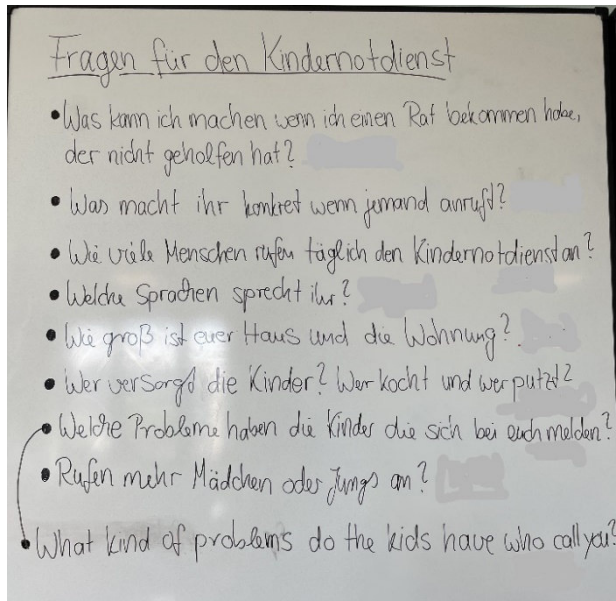 Fragen für den Kindernotdienst
• Was kann ich machen wenn ich einen Rat bekommen habe,
der nicht geholfen hat?
• Was macht ihr konkret wenn jemand anruft?
• Wie viele Menschen rufen täglich den Kindernotdienst an?
• Welche Sprachen sprecht ihr?
• Wie groß ist euer Haus und die Wohnung?
• Wer versorgt die Kinder? Wer kocht und wer putzt?
• Welche Probleme haben die Kinder die sich bei euch melden?
• Rufen mehr Mädchen oder Jungs an?
• What kind of problems do the kids have who call you?